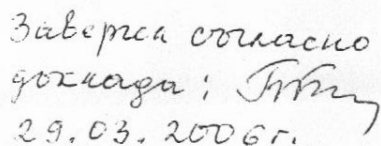 Заверка согласно
доклада:
29.03.2006г.